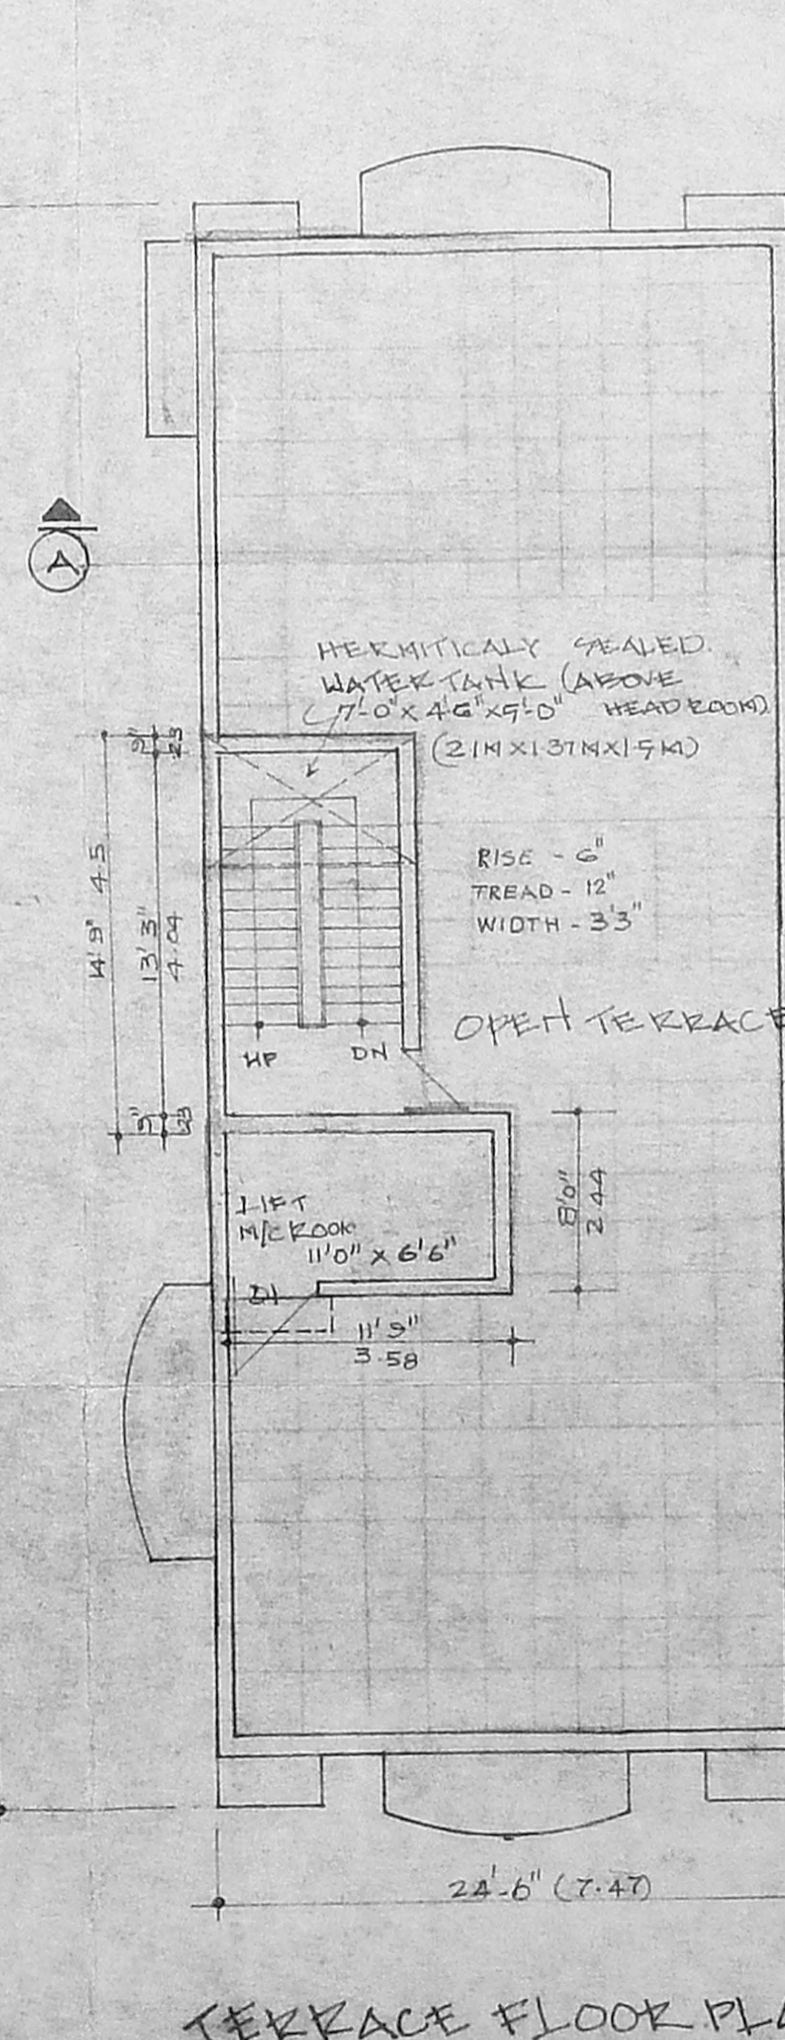 A
HERMITICALY SEALED.
WATER TANK (ABOVE
7'-0" X 4'6" X 5'-0" HEADROOM)
(2.1M X 1.37M X 1.5M)
9"
23
14'9" 4.5
13'3"
4.04
RISE - 6"
TREAD - 12"
WIDTH - 3'3"
OPEN TERRACE
UP DN
9"
23
LIFT
M/C ROOM
11'0" X 6'6"
8'0"
2.44
D1
11'9"
3.58
24'-6" (7.47)
TERRACE FLOOR PLA